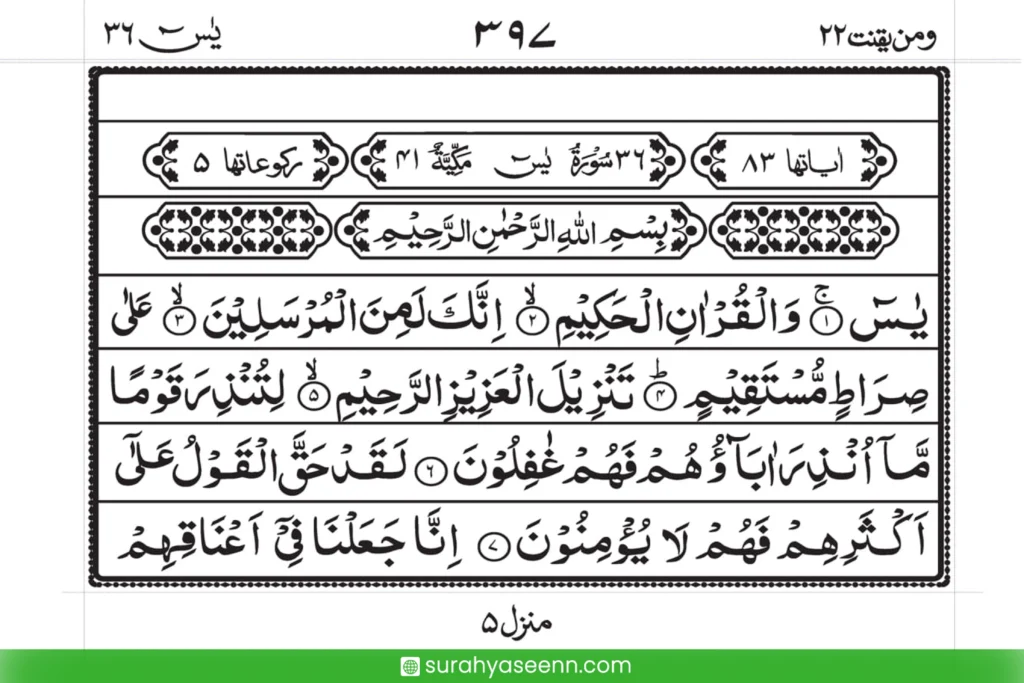 ومن يقنت ٢٢ ٣٩٧ يٰسٓ ٣٦
اٰیاتها ٨٣ ٣٦ سُوْرَةُ يٰسٓ مَكِّيَّةٌ ٤١ رکوعاتها ۵
بِسْمِ اللّٰهِ الرَّحْمٰنِ الرَّحِيْمِ
يٰسٓ ۚ﴿۱﴾ وَالْقُرْاٰنِ الْحَكِيْمِ ۙ﴿۲﴾ اِنَّكَ لَمِنَ الْمُرْسَلِيْنَ ۙ﴿۳﴾ عَلٰى
صِرَاطٍ مُّسْتَقِيْمٍ ؕ﴿۴﴾ تَنْزِيْلَ الْعَزِيْزِ الرَّحِيْمِ ۙ﴿۵﴾ لِتُنْذِرَ قَوْمًا
مَّاۤ اُنْذِرَ اٰبَآؤُهُمْ فَهُمْ غٰفِلُوْنَ ﴿۶﴾ لَقَدْ حَقَّ الْقَوْلُ عَلٰۤى
اَكْثَرِهِمْ فَهُمْ لَا يُؤْمِنُوْنَ ﴿۷﴾ اِنَّا جَعَلْنَا فِيْۤ اَعْنَاقِهِمْ
منزل ۵
surahyaseenn.com